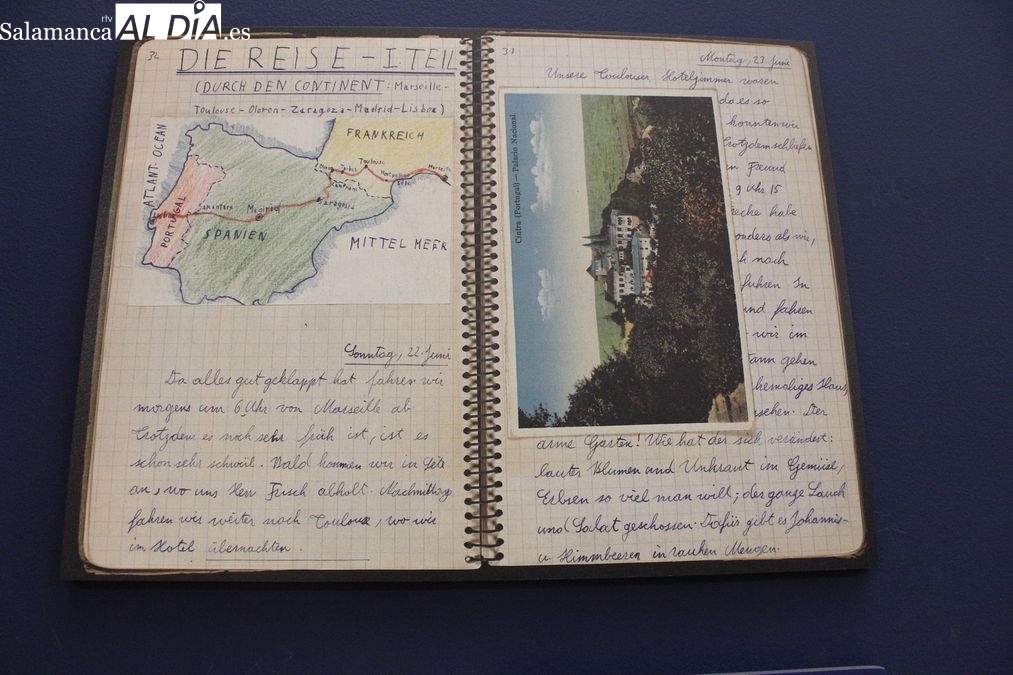 rtv
Salamanca AL DÍA.es
32
DIE REISE - I. TEIL
(DURCH DEN CONTINENT: Marseille-
Toulouse - Oloron - Zaragoza - Madrid - Lisboa)
ATLANT. OCEAN
FRANKREICH
Toulouse
Tarbes
Montpellier
Sète
Canfranc
Zaragossa
Madrid
PORTUGAL
SPANIEN
MITTELMEER
Sonntag, 22. Juni
Da alles gut geklappt hat fahren wir
morgens um 6 Uhr von Marseille ab
Trotzdem es noch sehr früh ist, ist es
schon sehr schwül. Bald kommen wir in Sète
an, wo uns Herr Frisch abholt. Nachmittags
fahren wir weiter nach Toulouse, wo wir
im Hotel übernachten.
Montag, 23. Juni
Unsere Toulouser Hotelzimmer waren
da es so
konnten wir
Trotzdem schliefen
Freund
9 Uhr 15
habe
als wir,
nach
fuhren In
und fahren
wir im
gehen
ehemaliges Haus,
Der
Cintra (Portugal) — Palacio Nacional.
arme Garten! Wie hat der sich verändert:
lauter Blumen und Unkraut im Gemüse,
Erbsen so viel man will; der ganze Lauch
und Salat geschossen. Dafür gibt es Johannis-
u. Himmbeeren in rauhen Mengen.